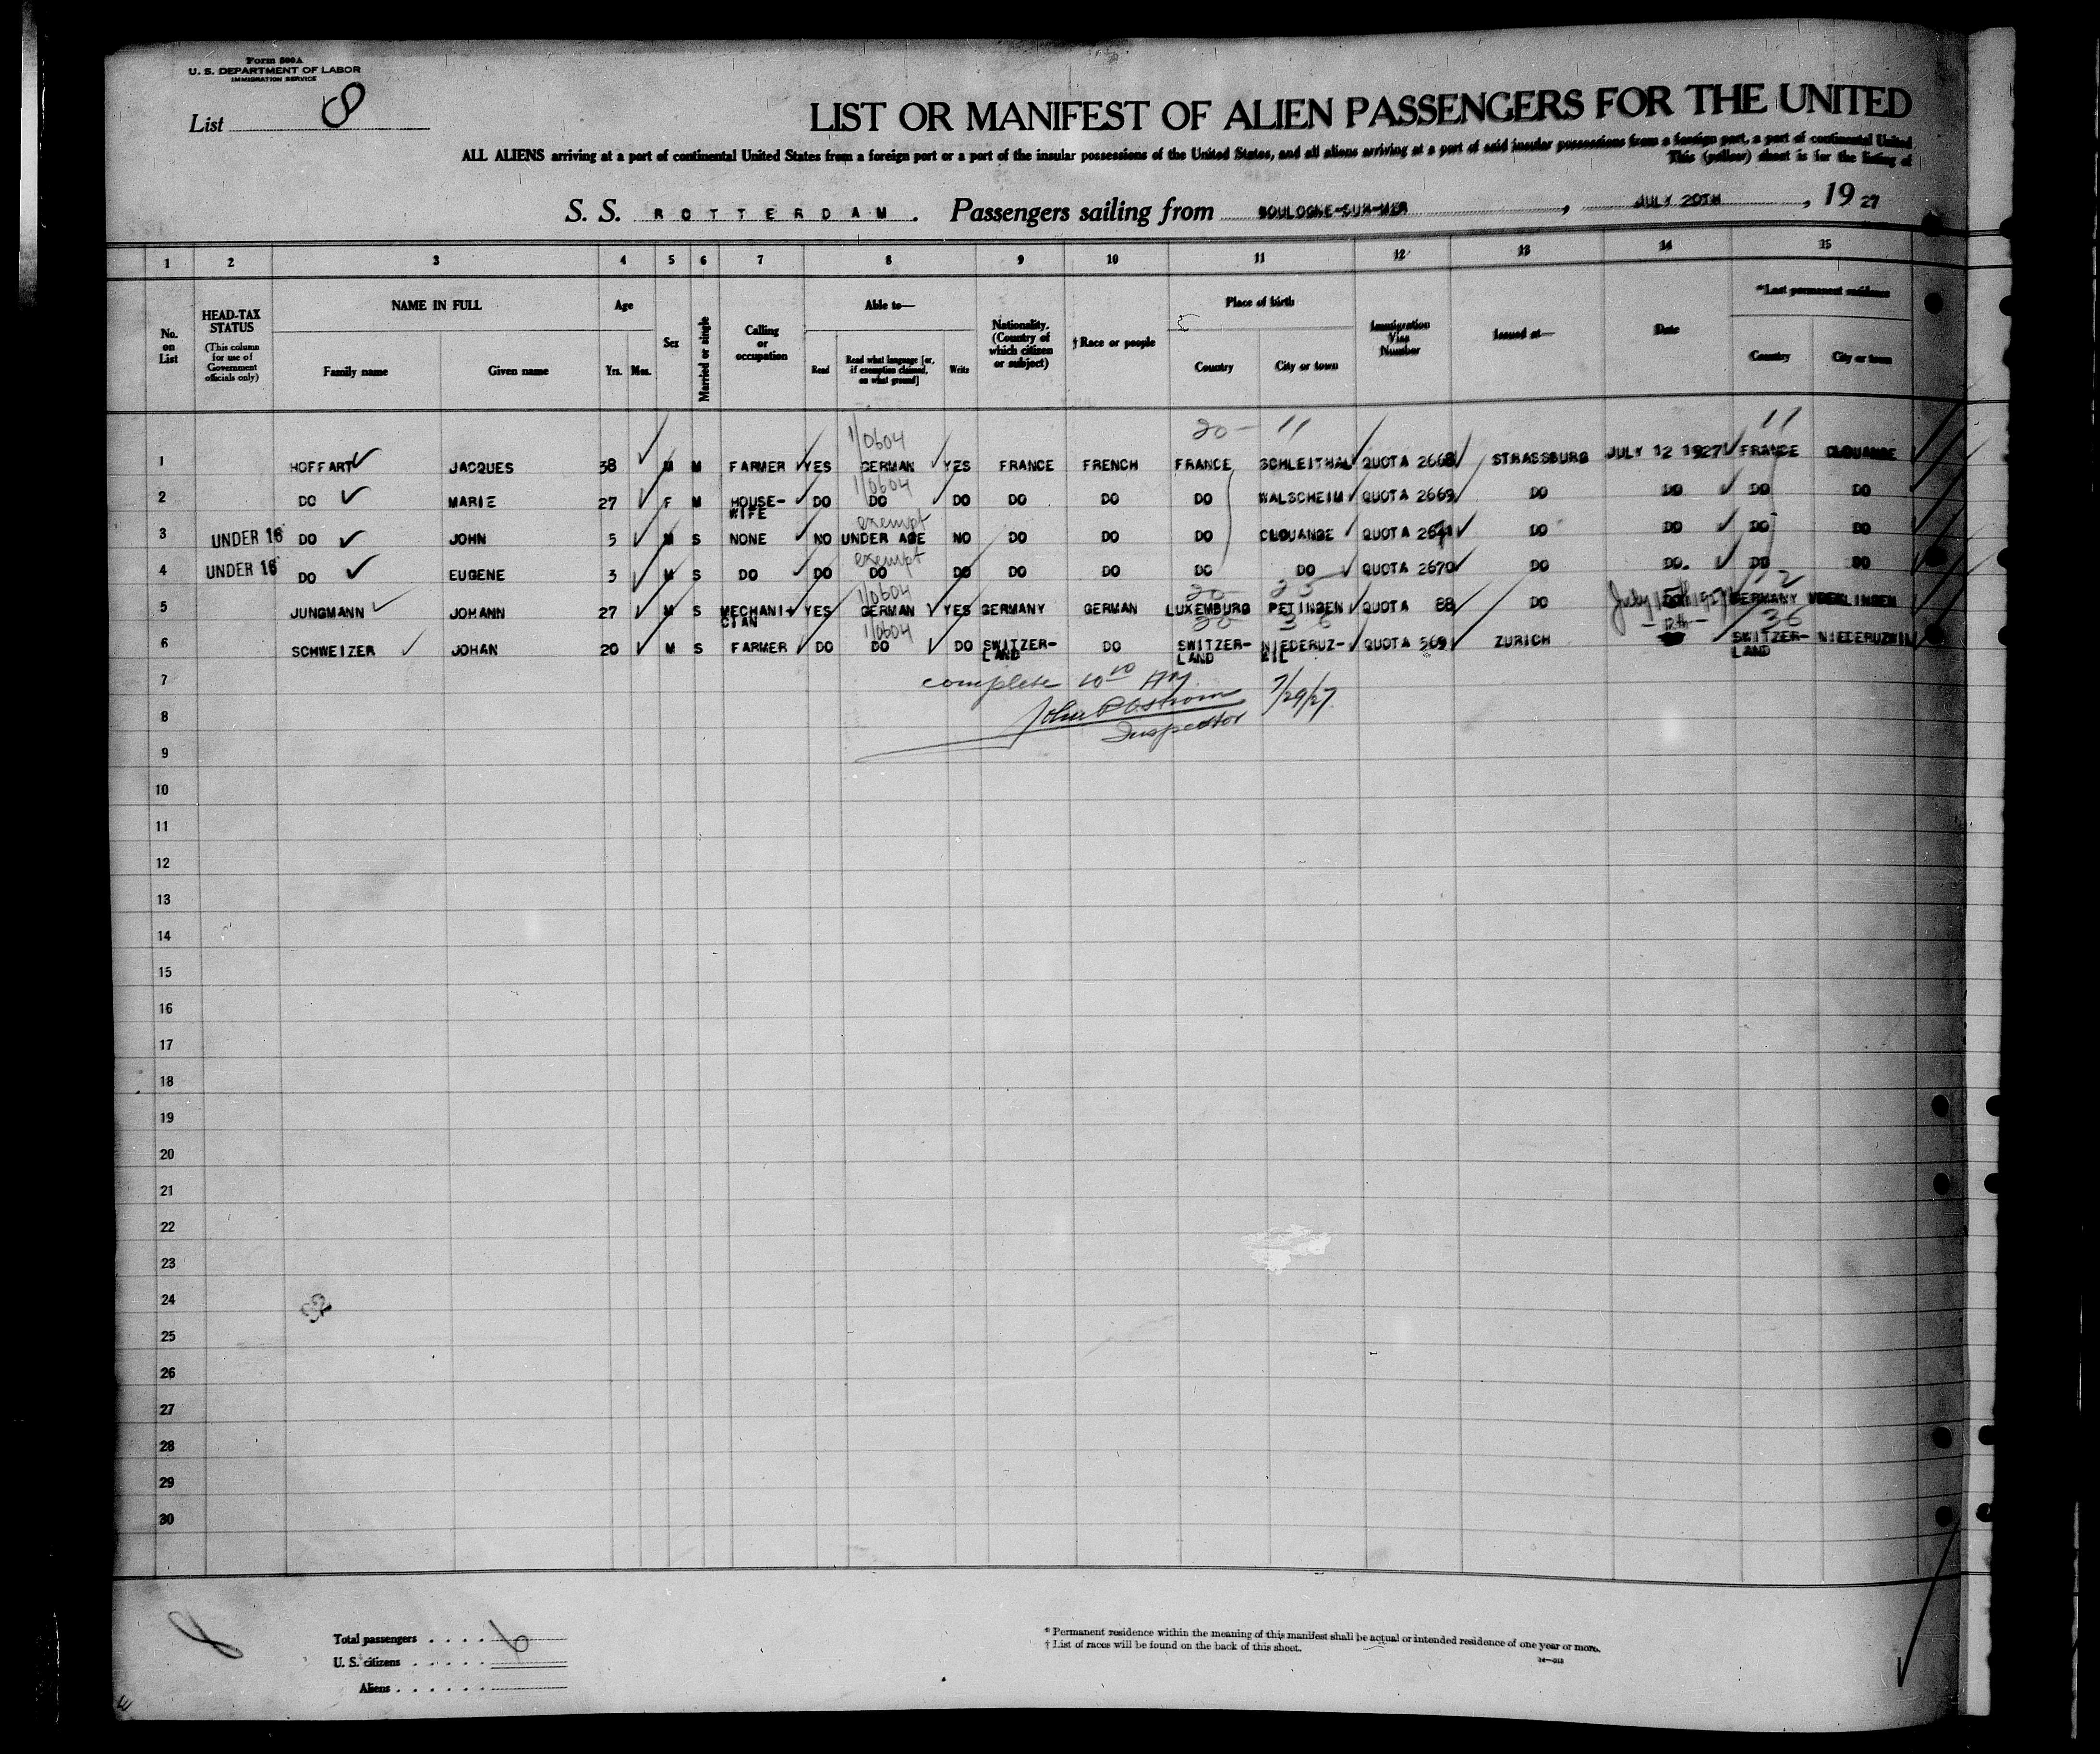 Form 500A
U. S. DEPARTMENT OF LABOR
IMMIGRATION SERVICE
List 8
LIST OR MANIFEST OF ALIEN PASSENGERS FOR THE UNITED
ALL ALIENS arriving at a port of continental United States from a foreign port or a port of the insular possessions of the United States, and all aliens arriving at a port of said insular possessions from a foreign port, a port of continental United
This (yellow) sheet is for the listing of
S. S. ROTTERDAM. Passengers sailing from BOULOGNE-SUR-MER, JULY 20TH, 19 27
1 2 3 4 5 6 7 8 9 10 11 12 13 14 15
No. on List
HEAD-TAX STATUS
(This column for use of Government officials only)
NAME IN FULL
Family name Given name
Age
Yrs. Mos.
Sex
Married or single
Calling or occupation
Able to—
Read
Read what language [or, if exemption claimed, on what ground]
Write
Nationality. (Country of which citizen or subject)
† Race or people
Place of birth
Country City or town
Immigration Visa Number
Issued at—
Date
*Last permanent residence
Country City or town
20- 11 11
1/0604
1 HOFFART JACQUES 38 M M FARMER YES GERMAN YES FRANCE FRENCH FRANCE SCHLEITHAL QUOTA 2668 STRASSBURG JULY 12 1927 FRANCE CLOUANGE
1/0604
2 DO MARIE 27 F M HOUSE-WIFE DO DO DO DO DO DO WALSCHEIM QUOTA 2669 DO DO DO DO
exempt
3 UNDER 16 DO JOHN 5 M S NONE NO UNDER AGE NO DO DO DO CLOUANGE QUOTA DO DO DO DO
exempt
4 UNDER 16 DO EUGENE 3 M S DO DO DO DO DO DO DO DO QUOTA 2670 DO DO. DO DO
1/0604 20- 25 12
5 JUNGMANN JOHANN 27 M S MECHANI-CIAN YES GERMAN YES GERMANY GERMAN LUXEMBURG PETINGEN QUOTA 88 DO July 1927 GERMANY
1/0604 20 36 -12th- 36
6 SCHWEIZER JOHAN 20 M S FARMER DO DO DO SWITZER-LAND DO SWITZER-LAND NIEDERUZ-WIL QUOTA 569 ZURICH SWITZER-LAND NIEDERUZWIL
7 complete 10¹⁰ AM 7/29/27
8 John P Ostrom
Inspector
9
10
11
12
13
14
15
16
17
18
19
20
21
22
23
24
25
26
27
28
29
30
8
Total passengers . . . . 6
U. S. citizens . . . . .
Aliens . . . . . .
* Permanent residence within the meaning of this manifest shall be actual or intended residence of one year or more.
† List of races will be found on the back of this sheet.